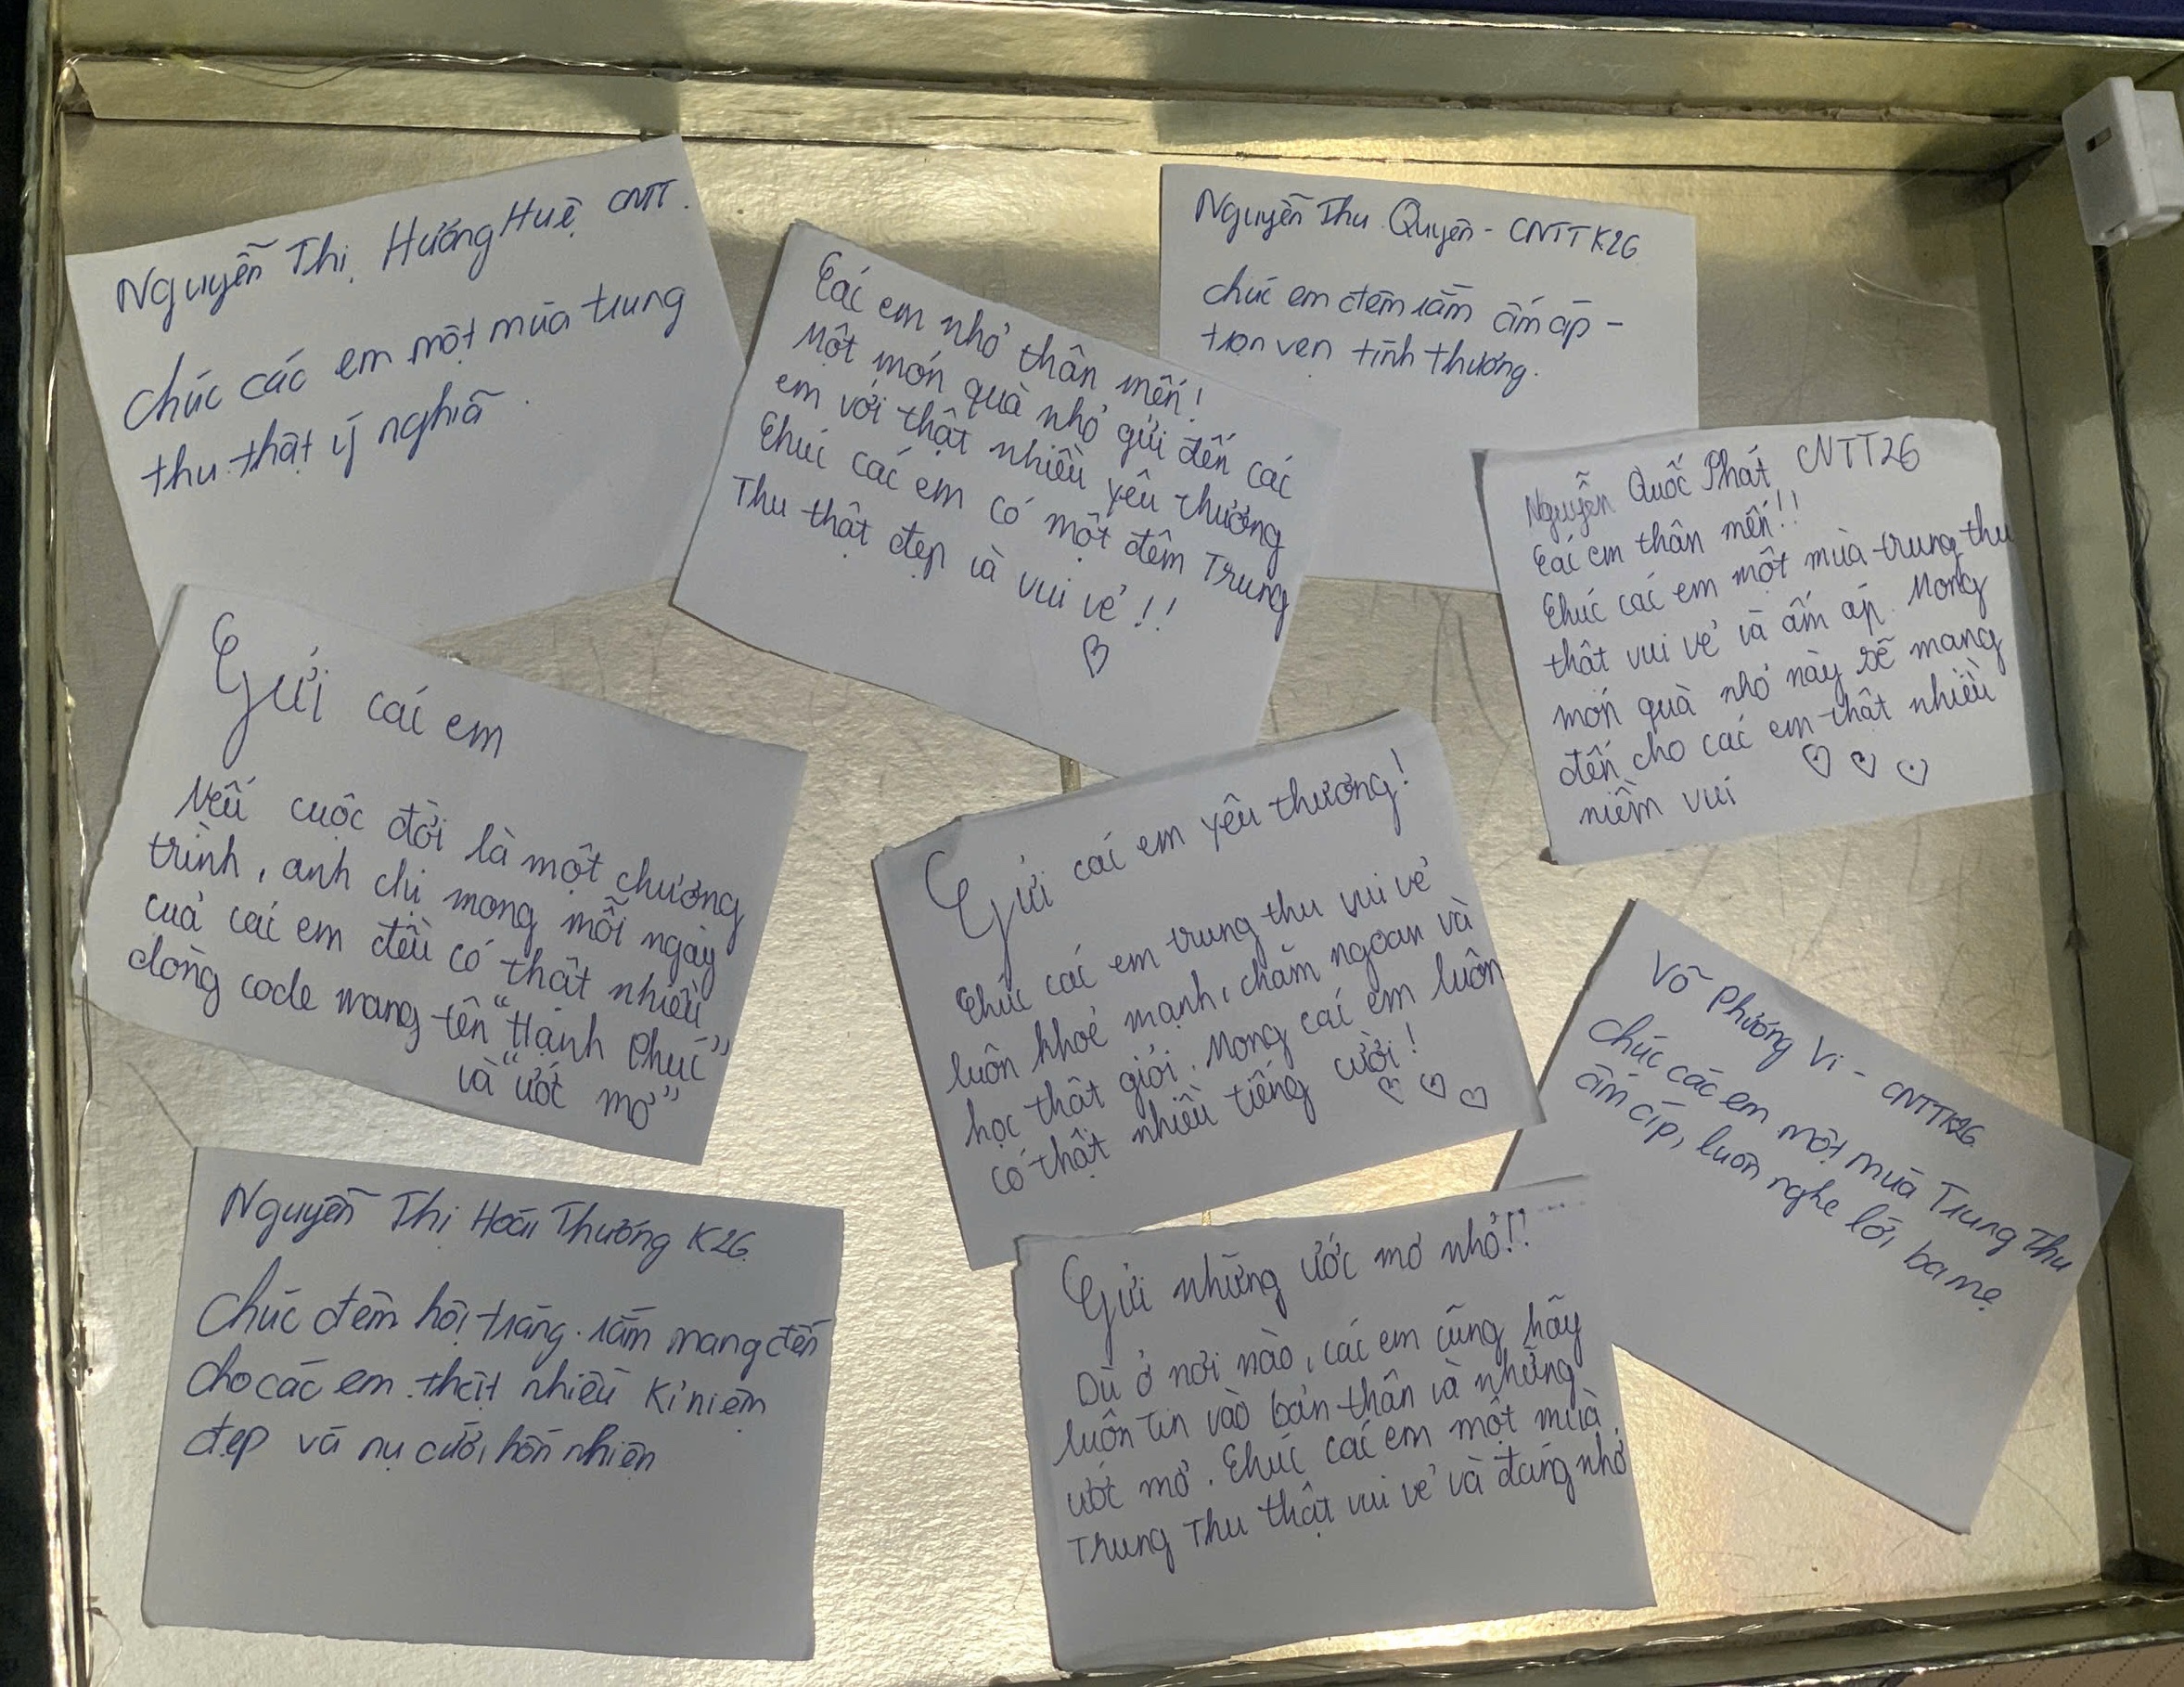 Nguyễn Thị Hương Huệ CNTT.
Chúc các em một mùa trung
thu thật ý nghĩa.
Các em nhỏ thân mến!
Một món quà nhỏ gửi đến các
em với thật nhiều yêu thương
Chúc các em có một đêm Trung
Thu thật đẹp và vui vẻ!!
Nguyễn Thu Quyên - CNTT K26
Chúc em đêm rằm ấm áp -
trọn vẹn tình thương.
Nguyễn Quốc Phát CNTT26
Các em thân mến!!
Chúc các em một mùa trung thu
thật vui vẻ và ấm áp. Mong
món quà nhỏ này sẽ mang
đến cho các em thật nhiều
niềm vui
Gửi các em
Nếu cuộc đời là một chương
trình, anh chị mong mỗi ngày
của các em đều có thật nhiều
dòng code mang tên "Hạnh Phúc"
và "ước mơ"
Gửi các em yêu thương!
Chúc các em trung thu vui vẻ
luôn khoẻ mạnh, chăm ngoan và
học thật giỏi. Mong các em luôn
có thật nhiều tiếng cười!
Võ Phương Vi - CNTTK26
Chúc các em một mùa Trung Thu
ấm áp, luôn nghe lời ba mẹ
Nguyễn Thị Hoài Thương K26
Chúc đêm hội trăng rằm mang đến
cho các em thật nhiều kỉ niệm
đẹp và nụ cười hồn nhiên
Gửi những ước mơ nhỏ!!
Dù ở nơi nào, các em cũng hãy
luôn tin vào bản thân và những
ước mơ. Chúc các em một mùa
Trung Thu thật vui vẻ và đáng nhớ